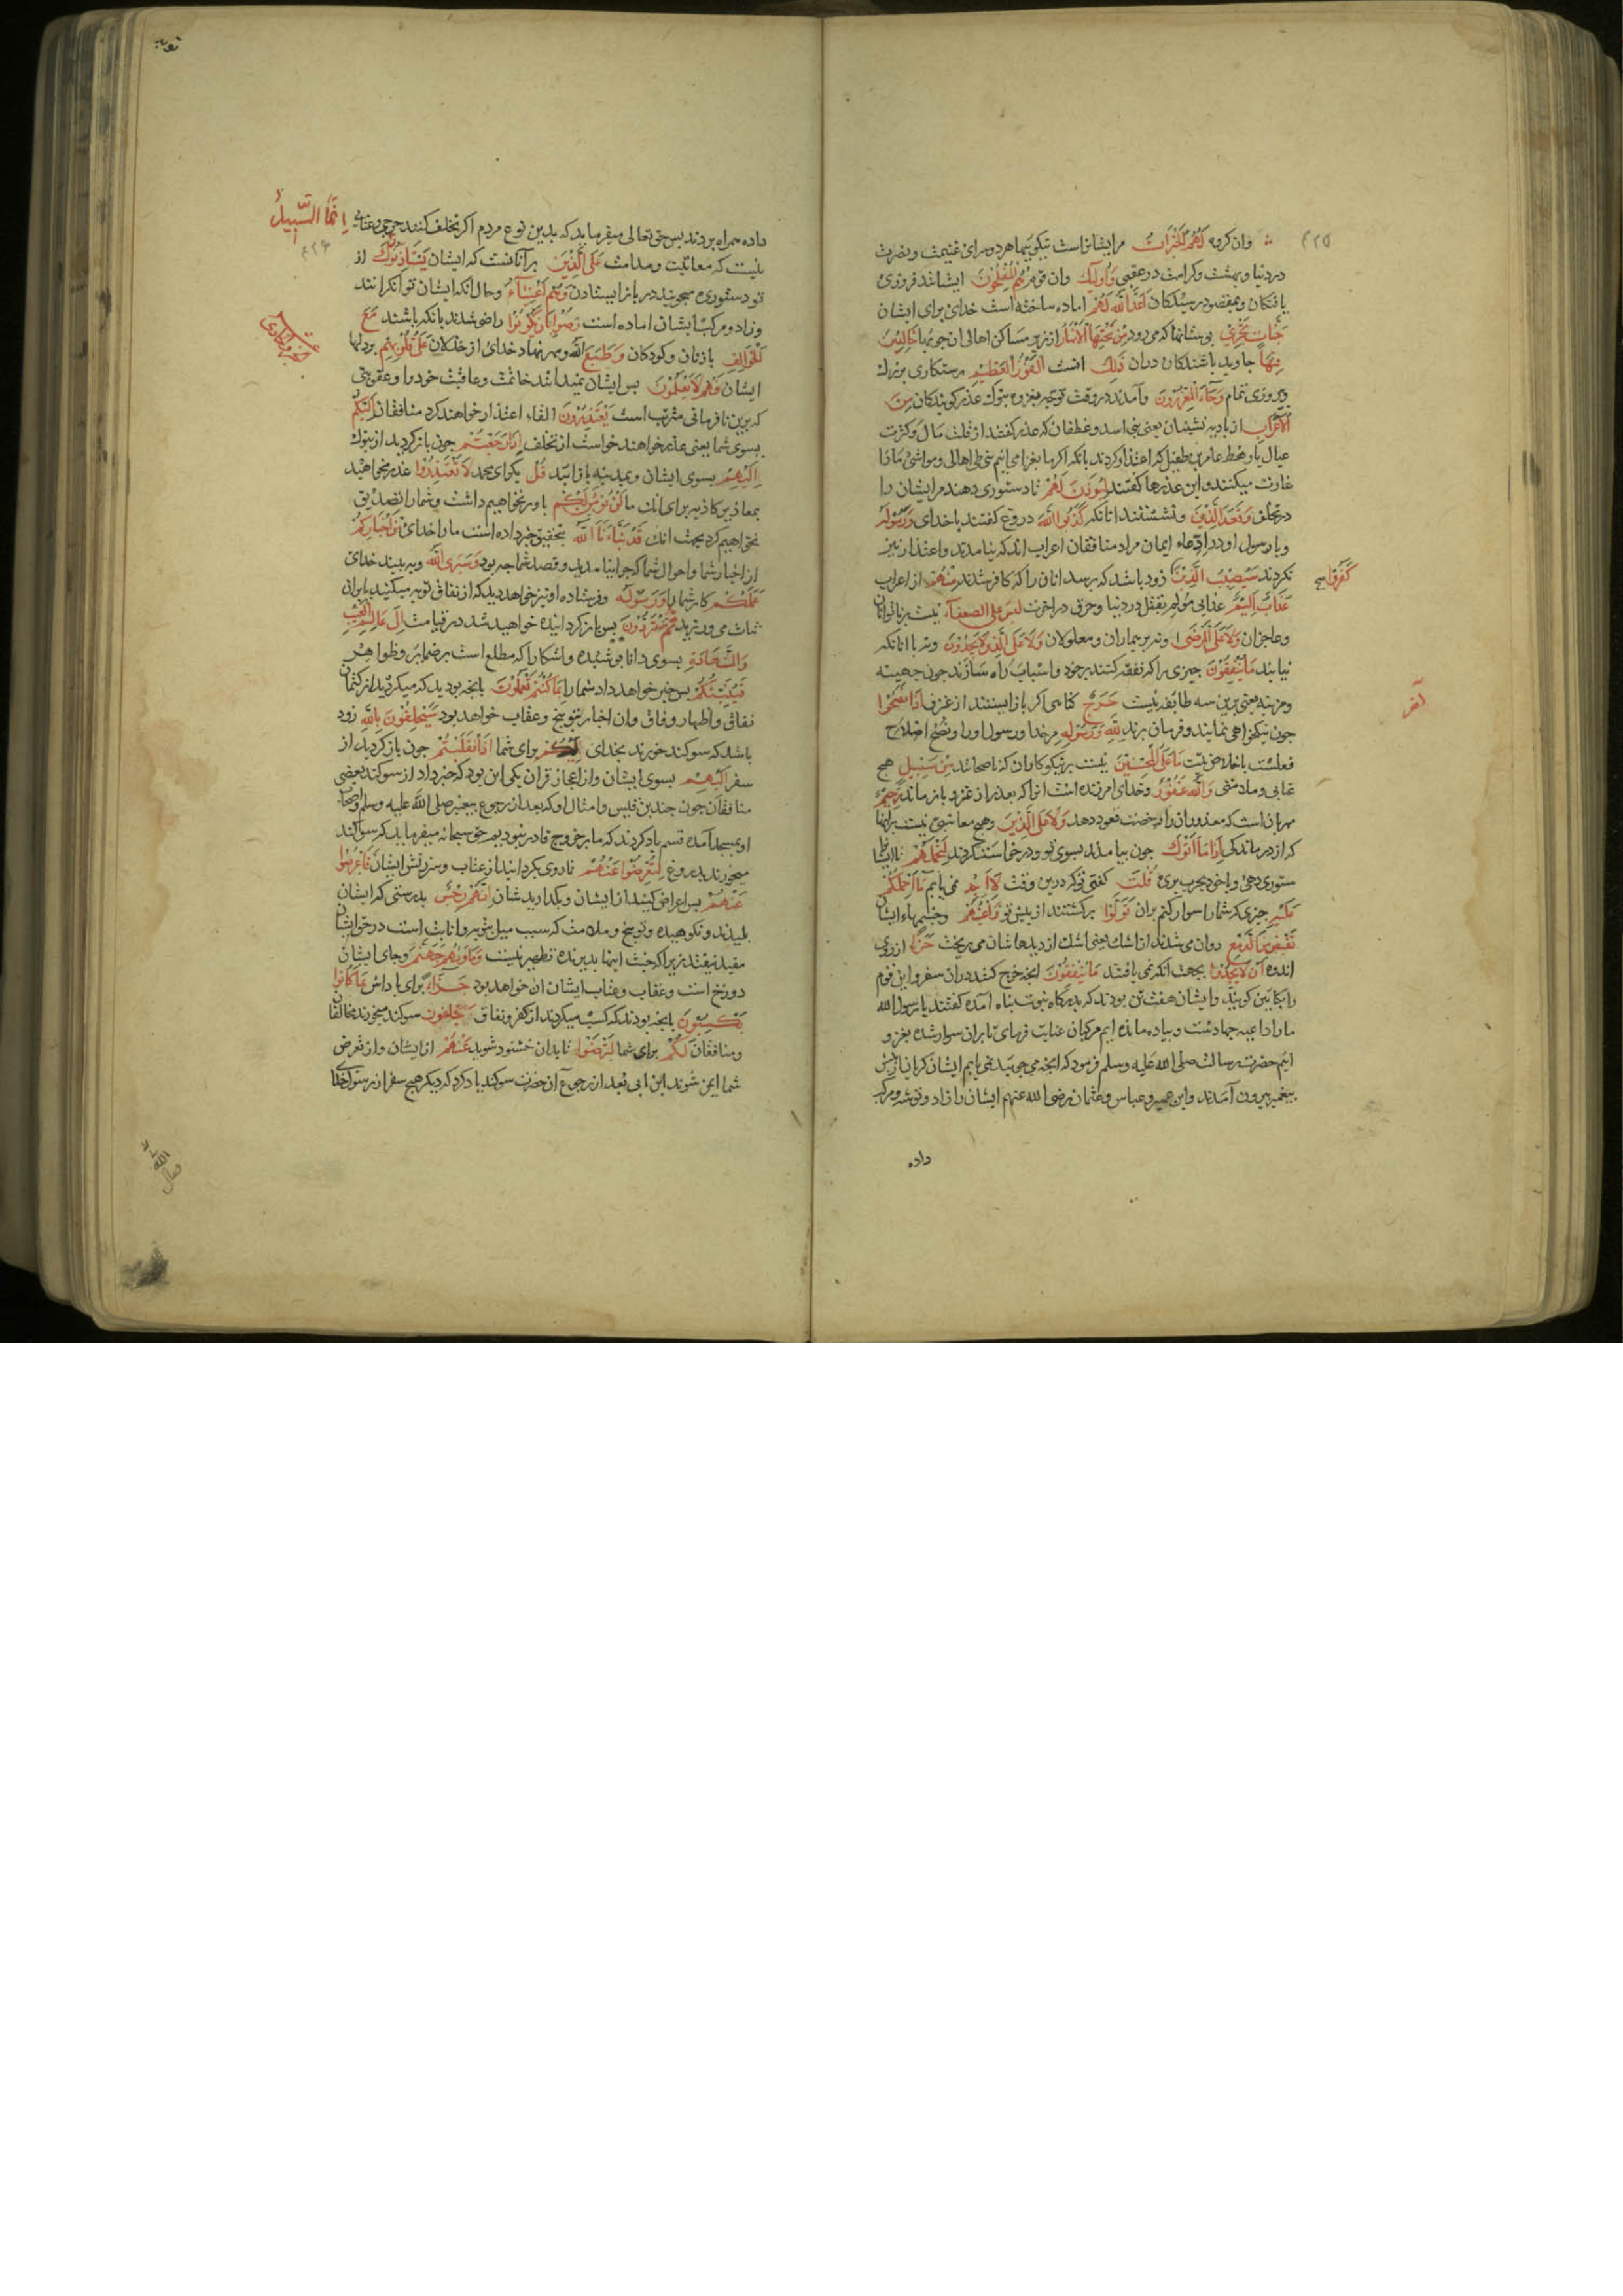 وان کروه لَهُمُ الْخَيْرَاتُ مرایشانراست نیکوییها هر دو سرای غنیمت ونصرت
در دنیا وبهشت وکرامت در عقبی وَأُولَئِكَ وان قوم هُمُ الْمُفْلِحُونَ ایشانند فیروزی
یافتکان وبمقصود رسیدکان أَعَدَّ اللَّهُ لَهُمْ اماده ساخته است خدای برای ایشان
جَنَّاتٍ تَجْرِي بوستانها که می رود مِنْ تَحْتِهَا الْأَنْهَارُ از زیر مساکن اهالی ان جویها خَالِدِينَ
فِيهَا جاوید باشندکان دران ذَلِكَ انست الْفَوْزُ الْعَظِيمُ رستکاری بزرك
وپیروزی تمام وَجَاءَ الْمُعَذِّرُونَ وآمدند در وقت توجه بغزوه تبوك عذر کویندکان مِنَ
الْأَعْرَابِ از بادیه نشینان یعنی بنی اسد وغطفان که عذر کفتند از قلت مال وکثرت
عیال یا رهط عامر بن طفیل که اعتذار کردند بانکه اکر ما بغزا می اییم بنی طی اهالی ومواشی ما را
غارت میکنند واین عذرها کفتند لِيُؤْذَنَ لَهُمْ تا دستوری دهند مر ایشان را
در تخلف وَقَعَدَ الَّذِينَ ونشستند انانکه كَذَبُوا اللَّهَ دروغ کفتند با خدای وَرَسُولَهُ
وبا رسول او در ادعاء ایمان مراد منافقان اعراب اند که نیامدند واعتذار نیز
نکردند سَيُصِيبُ الَّذِينَ زود باشد که برسد انان را که کافر شدند مِنْهُمْ از اعراب
كَفَرُوا
عَذَابٌ أَلِيمٌ عذابی مولم بقتل در دنیا وحرق در اخرت لَيْسَ عَلَى الضُّعَفَاءِ نیست بر ناتوانان
وعاجزان وَلَا عَلَى الْمَرْضَى ونه بر بیماران ومعلولان وَلَا عَلَى الَّذِينَ لَا يَجِدُونَ ونه بر انانکه
نیابند مَا يُنْفِقُونَ چیزی را که نفقه کنند بر خود واسباب راه سازند چون جهینه
ومزینه یعنی برین سه طایفه نیست حَرَجٌ کناهی اکر باز ایستند از غزو إِذَا نَصَحُوا
چون نیکخواهی نمایند وفرمان برند لِلَّهِ وَرَسُولِهِ مر خدا ورسول او را ونصح اصلاح
فعلست باخلاص نیت مَا عَلَى الْمُحْسِنِينَ نیست بر نیکوکاران که ناصحانند مِنْ سَبِيلٍ هیچ
عتابی وملامتی وَاللَّهُ غَفُورٌ وخدای امرزنده است انرا که بعذر از غزو باز ماند رَحِيمٌ
مهربان است که معذوران را رخصت قعود دهد وَلَا عَلَى الَّذِينَ وهیچ معاتبتی نیست برانها
که از درماندکی إِذَا مَا أَتَوْكَ چون بیامدند بسوی تو ودرخواست کردند لِتَحْمِلَهُمْ تا ایشانرا
ستوری دهی وبا خود بحرب بری قُلْتَ کفتی تو که درین وقت لَا أَجِدُ نمی یابم مَا أَحْمِلُكُمْ
عَلَيْهِ چیزی که شما را سوار کنم بران تَوَلَّوْا برکشتند از پیش تو وَأَعْيُنُهُمْ وچشمهاء ایشان
تَفِيضُ مِنَ الدَّمْعِ روان می شدند از اشك یعنی اشك از دیدهاشان می ریخت حَزَنًا از روی
اندوه أَنْ لَا يَجِدُوا بجهت انکه نمی یافتند مَا يُنْفِقُونَ انچه خرج کنند دران سفر واین قوم
را بکایین کویند وایشان هفت تن بودند که بدرکاه نبوت پناه آمده کفتند یا رسول الله
ما را داعیه جهادست وپیاده مانده ایم مرکبان عنایت فرمای تا بران سوار شده بغزو
اییم حضرت رسالت صلی الله علیه وسلم فرمود که انچه می جویید نمی یابم ایشان کریان از پیش
پیغمبر بیرون آمدند وابن عمیر وعباس وعثمان رضی الله عنهم ایشان را زاد وتوشه ومرکب
داده
داده همراه بردند پس حق تعالی میفرماید که بدین نوع مردم اکر تخلف کنند حرجی وعتابی
إِنَّمَا السَّبِيلُ
نیست که معاتبت وملامت عَلَى الَّذِينَ برآنانست که ایشان يَسْتَأْذِنُونَكَ از
تو دستوری میجویند در باز ایستادن وَهُمْ أَغْنِيَاءُ وحال انکه ایشان توانکرانند
وزاد ومرکب ایشان اماده است رَضُوا بِأَنْ يَكُونُوا راضی شدند بانکه باشند مَعَ
الْخَوَالِفِ با زنان وکودکان وَطَبَعَ اللَّهُ ومهر نهاد خدای از خذلان عَلَى قُلُوبِهِمْ بر دلها
ایشان فَهُمْ لَا يَعْلَمُونَ پس ایشان نمیدانند خاتمت وعاقبت خود را وعقوبتی
که برین نافرمانی مترتب است يَعْتَذِرُونَ القاء اعتذار خواهند کرد منافقان إِلَيْكُمْ
بسوی شما یعنی عذر خواهند خواست از تخلف إِذَا رَجَعْتُمْ چون باز کردید از تبوك
إِلَيْهِمْ بسوی ایشان وبمدینه باز ایید قُلْ بکو ای محمد لَا تَعْتَذِرُوا عذر مخواهید
بمعاذیر کاذبه برای انك ما لَنْ نُؤْمِنَ لَكُمْ باور نخواهیم داشت وشما را تصدیق
نخواهیم کرد بجهت انك قَدْ نَبَّأَنَا اللَّهُ بتحقیق خبر داده است ما را خدای مِنْ أَخْبَارِكُمْ
از اخبار شما واحوال شما که چرا نیامدید وقصد شما چه بود وَسَيَرَى اللَّهُ وبه بیند خدای
عَمَلَكُمْ کار شما را وَرَسُولُهُ وفرستاده او نیز خواهد دید که از نفاق توبه میکنید یا بران
ثبات می ورزید ثُمَّ تُرَدُّونَ پس باز کردانیده خواهید شد در قیامت إِلَى عَالِمِ الْغَيْبِ
وَالشَّهَادَةِ بسوی دانا پوشیده واشکارا که مطلع است بر ضمایر وظواهر
فَيُنَبِّئُكُمْ پس خبر خواهد داد شما را بِمَا كُنْتُمْ تَعْمَلُونَ بانچه بودید که میکردید از کتمان
نفاق واظهار وفاق وان اخبار بتوبیخ وعقاب خواهد بود سَيَحْلِفُونَ بِاللَّهِ زود
باشد که سوکند خورند بخدای لَكُمْ برای شما إِذَا انْقَلَبْتُمْ چون باز کردید از
سفر إِلَيْهِمْ بسوی ایشان واز اعجاز قران یکی این بود که خبر داد از سوکند بعضی
منافقان چون جد بن قیس وامثال او که بعد از رجوع پیغمبر صلی الله علیه وسلم واصحاب
او بمسجد آمده قسم یاد کردند که ما بر خروج قادر نبودیم حق سبحانه میفرماید که سوکند
میخورند بدروغ لِتُعْرِضُوا عَنْهُمْ تا روی بکردانید از عتاب وسرزنش ایشان فَأَعْرِضُوا
عَنْهُمْ پس اعراض کنید از ایشان وبکذارید شان إِنَّهُمْ رِجْسٌ بدرستی که ایشان
پلیدند ونکوهیده وتوبیخ وملامت که سبب میل بتوبه وانابت است در حق ایشان
مفید نیفتد زیرا که خبث اینها بدین نوع تطهیر نیست وَمَأْوَاهُمْ جَهَنَّمُ وجای ایشان
دوزخ است وعقاب وعتاب ایشان ان خواهد بود جَزَاءً برای پاداش بِمَا كَانُوا
يَكْسِبُونَ بانچه بودند که کسب میکردند از کفر ونفاق يَحْلِفُونَ سوکند میخورند مخالفان
ومنافقان لَكُمْ برای شما لِتَرْضَوْا تا بدان خشنود شوید عَنْهُمْ از ایشان واز تعرض
شما ایمن شوند ابن ابی بعد از رجوع آن حضرت سوکند یاد کرد که دیکر هیچ سفر از رسول خدا